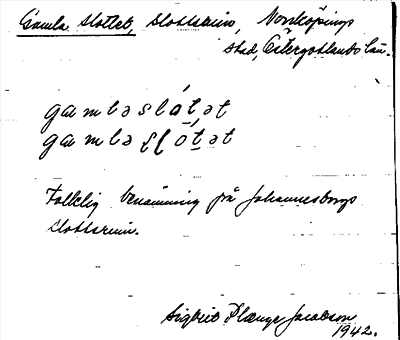 Gamla slottet, Slottsruin, Norrköpings
stad, Östergötlands län.
gamləslátət
gamlə slótət
Folklig benämning på Johannesborgs
slottsruin.
Sigbrit Plænge Jacobson
1942.